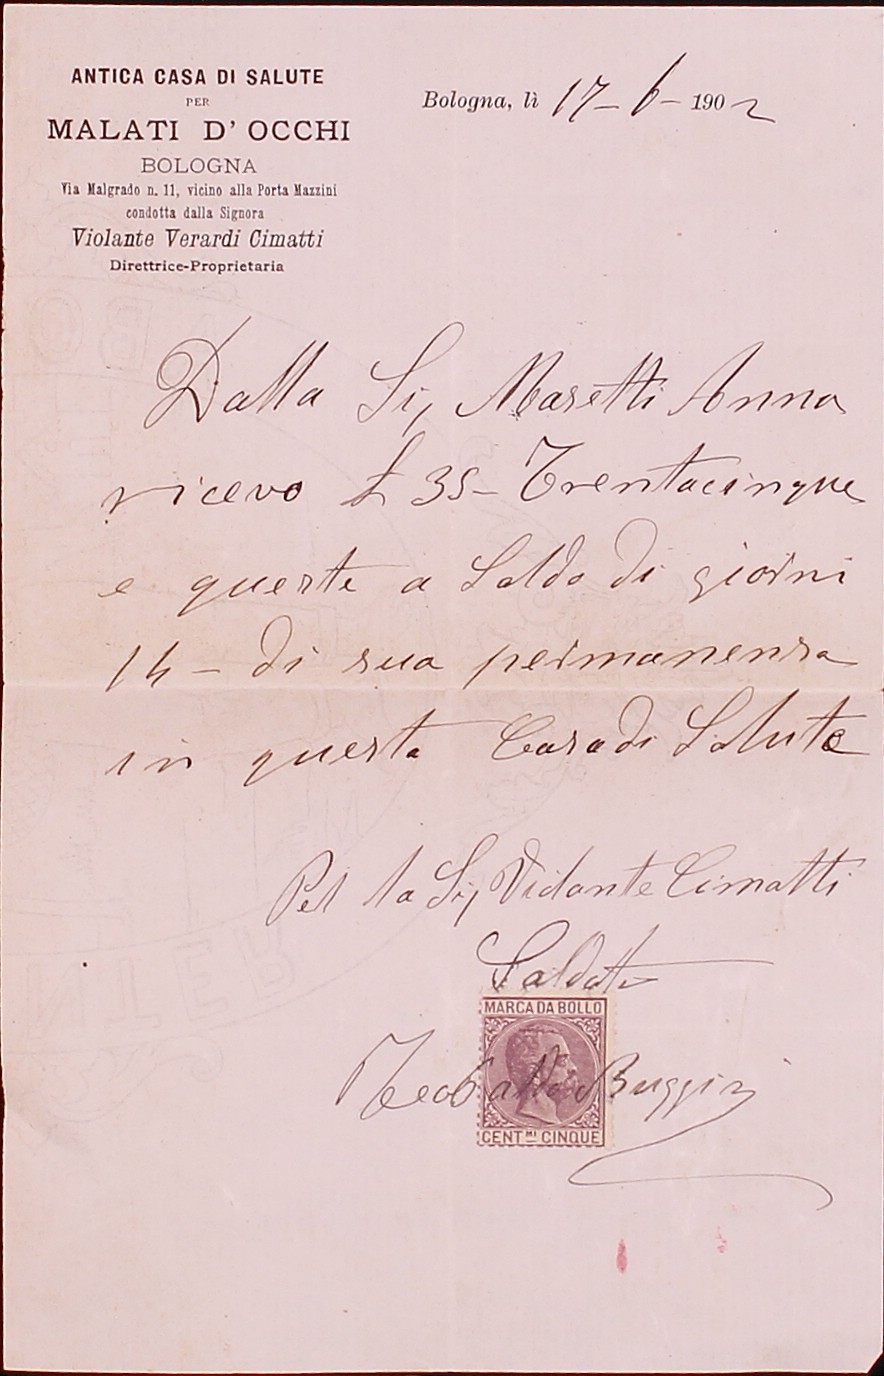 ANTICA CASA DI SALUTE
PER
MALATI D'OCCHI
BOLOGNA
Via Malgrado n. 11, vicino alla Porta Mazzini
condotta dalla Signora
Violante Verardi Cimatti
Direttrice-Proprietaria
Bologna, lì 17-6-1902
Dalla Si, Masetti Anna
ricevo £ 35- Trentacinque
e queste a Saldo di giorni
14- di sua permanenza
in questa Casa di Salute
Per la Si, Violante Cimatti
MARCA DA BOLLO
CENT.MI CINQUE